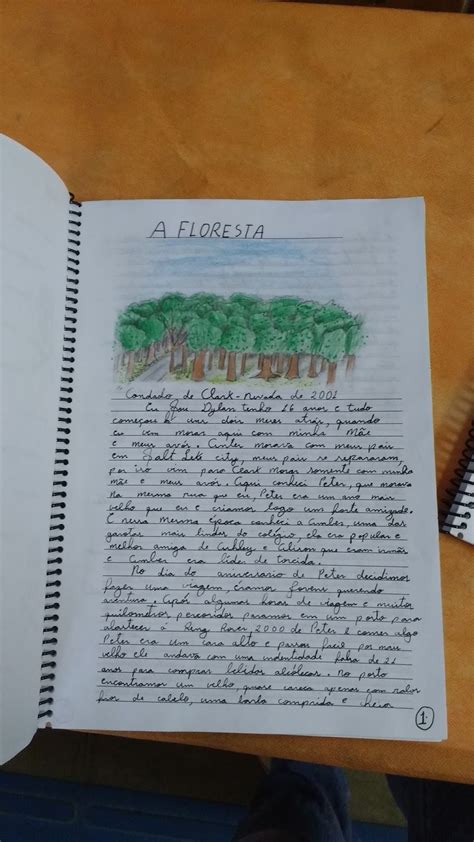 A FLORESTA
Condado de Clark - nevada de 2001
Eu sou Dylan tenho 16 anos e tudo
começou a uns dois meses atrás, quando
eu vim morar aqui com minha Mãe
e meus avós. Antes morava com meus pais
em Salt Lake city, meus pais se separaram,
por isso vim para Clark morar somente com minha
mãe e meus avós. Aqui conheci Peter, que morava
na mesma rua que eu, Peter era um ano mais
velho que eu e criamos logo um forte amizade.
E nessa mesma época conheci a Amber, uma das
garotas mais lindas do colégio, ela era popular e
melhor amiga de Ashley e Alison que eram irmãs
e Amber era líder de torcida.
No dia do aniversario de Peter decidimos
fazer uma viagem, eramos jovens querendo
aventura. Após algumas horas de viagem e muitos
quilometros percorridos paramos em um posto para
abastecer o Rover 2000 de Peter e comer algo
Peter era um cara alto e passou facil por mais
velho ele andava com uma indentidade falsa de 21
anos para comprar bebidas alcólicas. No posto
encontramos um velho, quase careca apenas com
fios de cabelo, uma barba comprida e
1